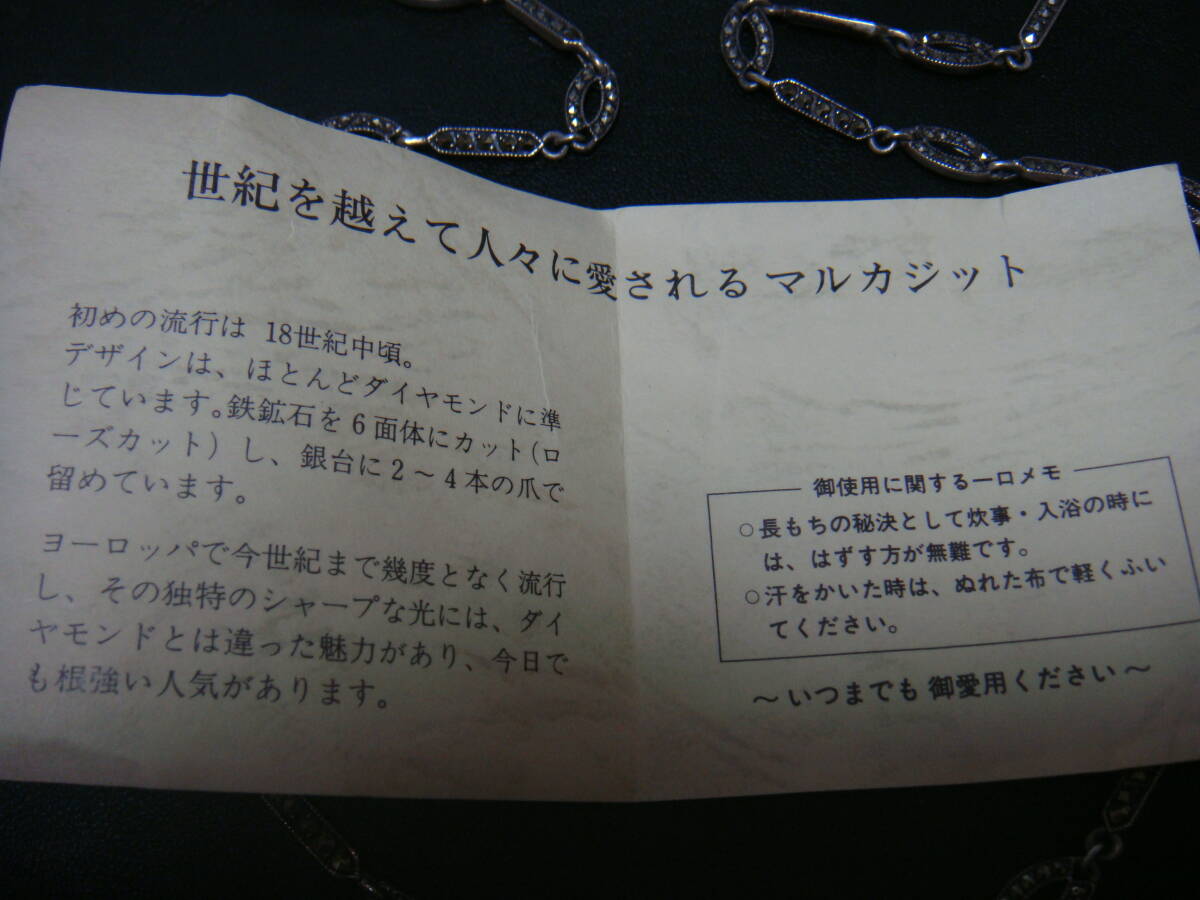 世紀を越えて人々に愛されるマルカジット
初めの流行は 18世紀中頃。
デザインは、ほとんどダイヤモンドに準
じています。鉄鉱石を6面体にカット(ロ
ーズカット) し、銀台に2～4本の爪で
留めています。
ヨーロッパで今世紀まで幾度となく流行
し、その独特のシャープな光には、ダイ
ヤモンドとは違った魅力があり、今日で
も根強い人気があります。
御使用に関する一口メモ
○長もちの秘決として炊事・入浴の時に
は、はずす方が無難です。
○汗をかいた時は、ぬれた布で軽くふい
てください。
～いつまでも 御愛用ください～